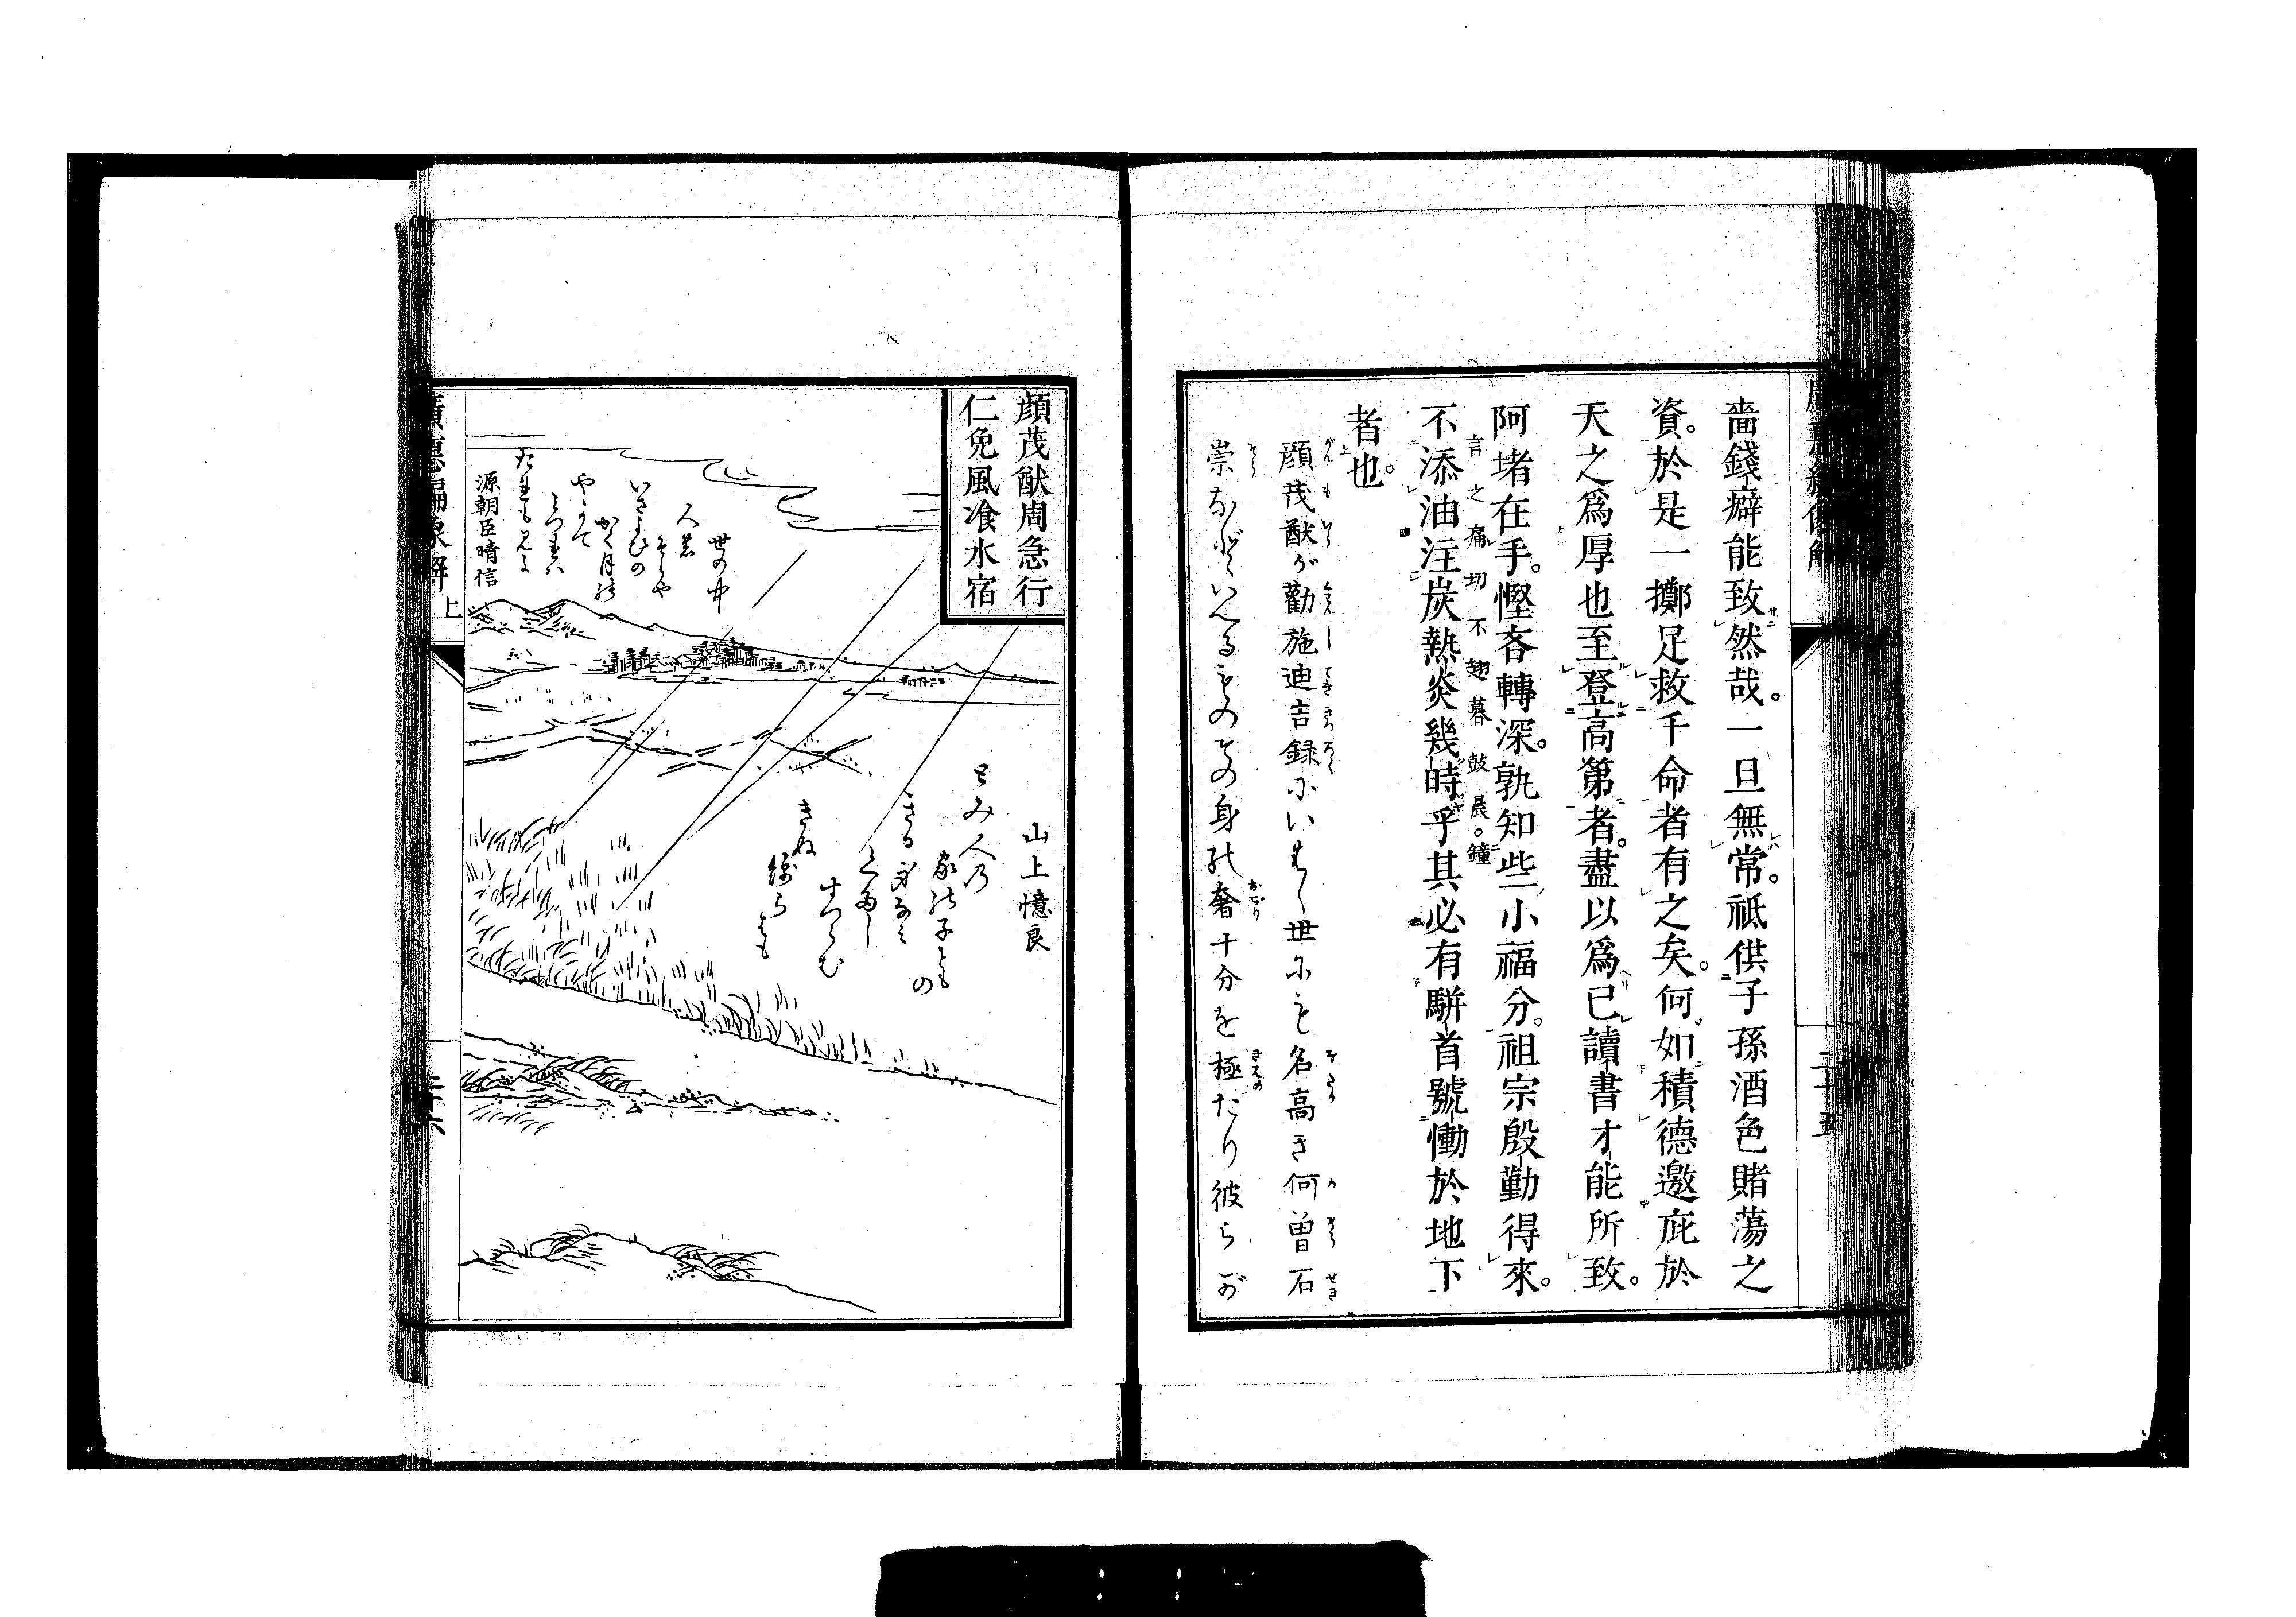 嗇錢癖能致然哉。一旦無常。祗供子孫酒色賭蕩之
資。於是一擲足救千命者有之矣。何如積德邀庇於
天之爲厚也至登高第者。盡以爲己讀書才能所致。
阿堵在手。慳吝轉深。孰知些小福分。祖宗殷勤得來。
言之痛切不翅暮鼓晨。鐘
不添油注炭熱炎幾時乎其必有駢首號慟於地下
者也。
顔茂猷が勸施迪吉録にいはく世にも名高き何曽石
崇などいへるものその身の奢十分を極たり彼らが
二十五
顔茂猷周急行
仁免風飡水宿
山上憶良
とみ人乃
家の子ともの
きる身なみ
くたし
すつらむ
きぬ
綿らはも
世の中
人若
いさよひの
かく月の
やかて
みつれは
源朝臣晴信
廣惠編象解 上
二十六